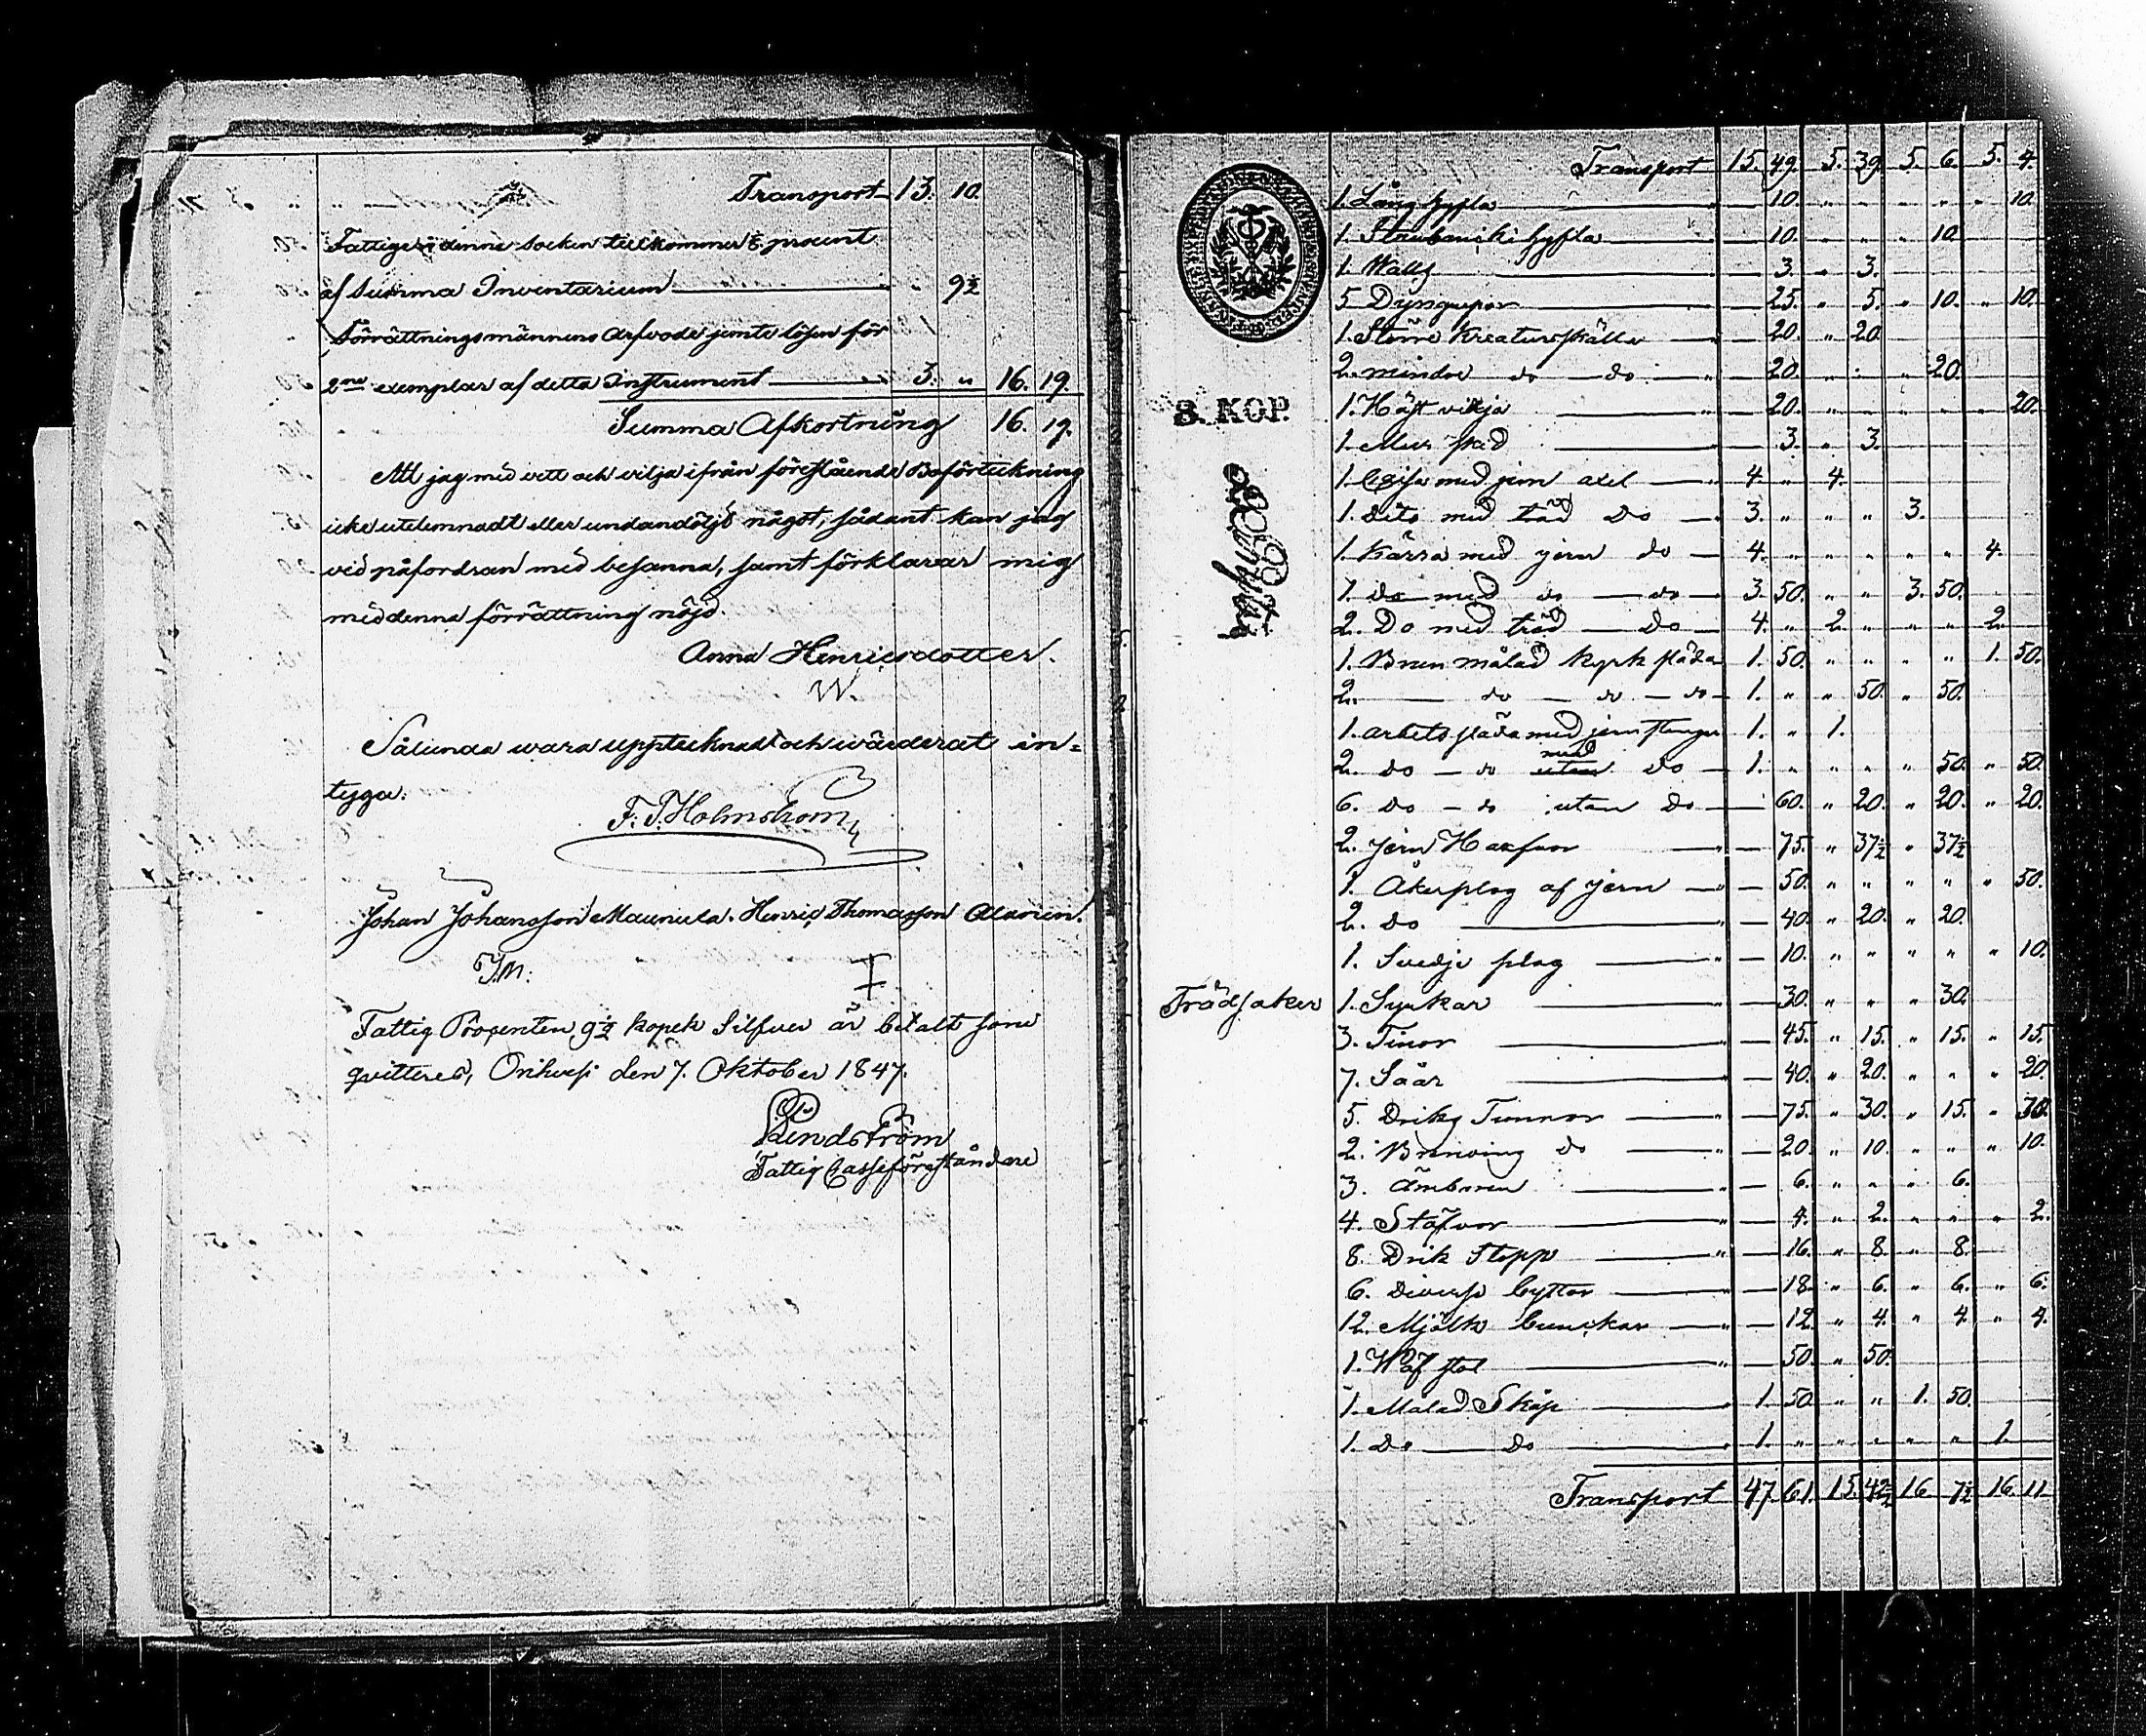 Transport 13. 10.
Fattige i denne socken tillkommer 1/8 procent
af Summa Inventarium " 9½
Förrättningsmännens arfvode jemte lösen för
2ne exemplar af detta Instrument 3. " 16. 19.
Summa Afkortning 16. 19.
Att jag med vett och vilja ifrån föreståendе Boförteckning
icke utelemnadt eller undandöljt något, sådant kan jag
vid påfordran med besanna, samt förklarar mig
med denna förrättning nöjd.
Anna Henricsdotter.
W.
Sålunda wara upptecknadt och wärderat in=
tyga:
F. T. Holmstrom
Johan Johansson Maunula. Henric Thomasson Alanen.
I.M. ‡
Fattig Procenten 9½ kopek Silfver är betalt som
qvitteras, Orihvesi den 7. Oktober 1847.
Lindström
Fattig Casseföreståndare
8. KOP.
Transport 15. 49. 5. 39. 5. 6. 5. 4.
1. Lång hyfla — 10. " " " " " 10.
1. hyfla — 10. " " " 10.
1. Wallz — 3. " 3.
5 Dyngrepor — 25. " 5. " 10. " 10.
1. Större Kreatursskälla — 20. " 20.
2. mindre do — do — 20. " " " 20.
1. Häst — 20. " " " " " 20.
1. Mur spad — 3. " 3.
1. med jern axel — 4. " 4.
1. dito med träd do — 3. " " " 3.
1. Kärra med jern do — 4. " " " " " 4.
1. do med do — do — 3. 50. " " 3. 50.
2. Do med träd — do — 4. " 2. " " " 2.
1. Brun målad kyrk släda 1. 50. " " " " 1. 50.
2. — do — do — do — 1. " " 50. " 50.
1. arbets släda med jernstänger 1. " 1.
2. do — do med do — 1. " " " " 50. " 50.
6. do — do utan do — 60. " 20. " 20. " 20.
2. jern Harfvor — 75. " 37½ " 37½
1. Åkerplog af jern — 50. " " " " " 50.
2. do — 40. " 20. " 20.
1. Svedje plog — 10. " " " " " 10.
Trädsaker 1. — 30. " " " 30.
3. Tinor — 45. " 15. " 15. " 15.
7. Såår — 40. " 20. " " " 20.
5. Driks Tunnor — 75. " 30. " 15. " 30.
2. Bränvins do — 20. " 10. " " " 10.
3. Ämbaren — 6. " " " 6.
4. Stäfvor — 4. " 2. " " " 2.
8. Drik Stopp — 16. " 8. " 8.
6. Diverse byttor — 18. " 6. " 6. " 6.
12. Mjölk bunckar — 12. " 4. " 4. " 4.
1. Wäf stol — 50. " 50.
1. Målad Skåp — 1. 50. " " 1. 50.
1. Do — Do — 1. " " " " " 1.
Transport 47. 61. 15. 42½ 16. 7½ 16. 11